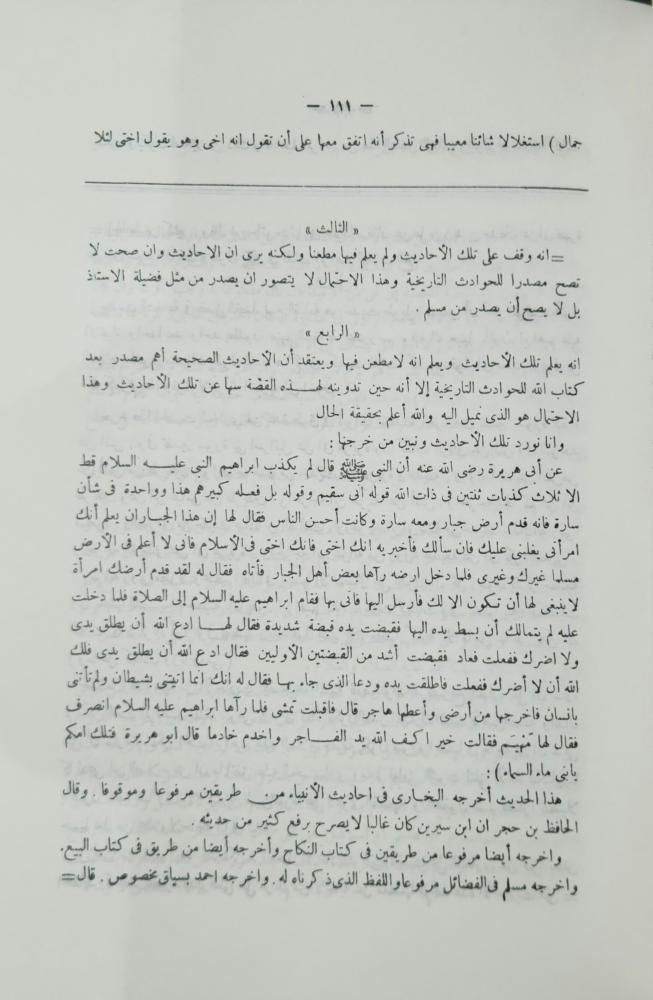 — ١١١ —
جمال ) استغلالا شائنا معيبا فهى تذكر أنه اتفق معها على أن تقول انه اخى وهو يقول اختى لئلا
« الثالث »
= انه وقف على تلك الأحاديث ولم يعلم فيها مطعنا ولكنه يرى ان الاحاديث وان صحت لا
تصح مصدرا للحوادث التاريخية وهذا الاحتمال لا يتصور ان يصدر من مثل فضيلة الاستاذ
بل لا يصح أن يصدر من مسلم .
« الرابع »
انه يعلم تلك الأحاديث ويعلم انه لامطعن فيها ويعتقد أن الأحاديث الصحيحة أهم مصدر بعد
كتاب الله للحوادث التاريخية إلا أنه حين تدوينه لهــذه القصة سها عن تلك الأحاديث وهذا
الاحتمال هو الذى نميل اليه والله أعلم بحقيقة الحال
وانا نورد تلك الأحاديث ونبين من خرجها :
عن أبى هريرة رضى الله عنه أن النبى ﷺ قال لم يكذب ابراهيم النبى عليــه السلام قط
الا ثلاث كذبات ثنتين فى ذات الله قوله انى سقيم وقوله بل فعله كبيرهم هذا وواحدة فى شأن
سارة فانه قدم أرض جبار ومعه سارة وكانت أحسن الناس فقال لها إن هذا الجبار ان يعلم أنك
امرأتى يغلبنى عليك فان سألك فأخبريه انك اختى فانك اختى فى الأسلام فانى لا أعلم فى الأرض
مسلما غيرك وغيرى فلما دخل ارضه رآها بعض أهل الجبار فأتاه فقال له لقد قدم أرضك امرأة
لا ينبغى لها أن تكون الا لك فأرسل اليها فاتى بها فقام ابراهيم عليه السلام إلى الصلاة فلما دخلت
عليه لم يتمالك أن بسط يده اليها فقبضت يده قبضة شديدة فقال لهــا ادع الله أن يطلق يدى
ولا اضرك ففعلت فعاد فقبضت أشد من القبضتين الأوليين فقال ادع الله أن يطلق يدى فلك
الله أن لا أضرك ففعلت فاطلقت يده ودعا الذى جاء بهـا فقال له انك انما اتيتنى بشيطان ولم تأتنى
بانسان فاخرجها من أرضى وأعطها هاجر قال فاقبلت تمشى فلما رآها ابراهيم عليه السلام انصرف
فقال لها مَهْيَم فقالت خيرا كف الله يد الفــاجر واخدم خادما قال ابو هريرة فتلك امكم
يابنى ماء السماء ) :
هذا الحديث أخرجه البخارى فى احاديث الأنبياء من طريقين مرفوعا وموقوفا . وقال
الحافظ بن حجر ان ابن سيرين كان غالبا لا يصرح برفع كثير من حديثه .
واخرجه أيضا مرفوعا من طريقين فى كتاب النكاح وأخرجه أيضا من طريق فى كتاب البيع.
واخرجه مسلم فى الفضائل مرفوعا واللفظ الذى ذكرناه له . واخرجه احمد بسياق مخصوص . قال =